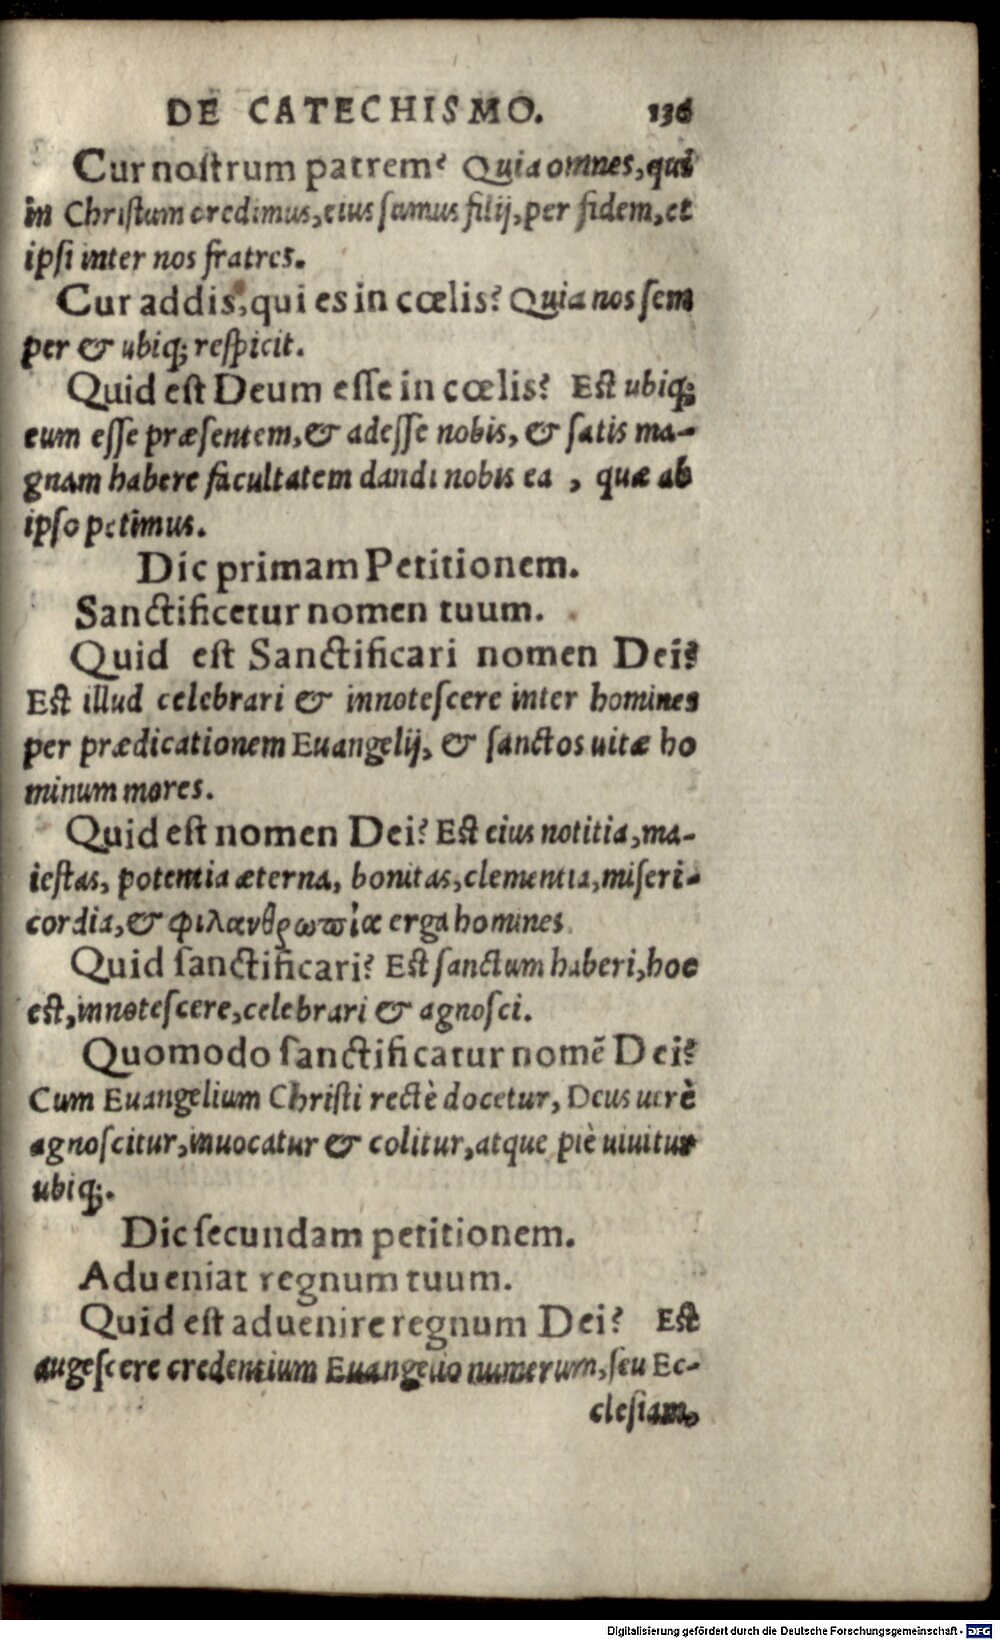 DE CATECHISMO. 136
Cur nostrum patrem? Quia omnes, qui
in Christum credimus, eius sumus filij, per fidem, et
ipsi inter nos fratres.
Cur addis, qui es in cœlis? Quia nos sem
per & ubiq; respicit.
Quid est Deum esse in cœlis? Est ubiq;
eum esse præsentem, & adesse nobis, & satis ma-
gnam habere facultatem dandi nobis ea, quæ ab
ipso petimus.
Dic primam Petitionem.
Sanctificetur nomen tuum.
Quid est Sanctificari nomen Dei?
Est illud celebrari & innotescere inter homines
per prædicationem Euangelij, & sanctos uitæ ho
minum mores.
Quid est nomen Dei? Est eius notitia, ma-
iestas, potentia æterna, bonitas, clementia, miseri-
cordia, & φιλανθρωπία erga homines.
Quid sanctificari? Est sanctum haberi, hoc
est, innotescere, celebrari & agnosci.
Quomodo sanctificatur nomē Dei?
Cum Euangelium Christi rectè docetur, Deus uerè
agnoscitur, inuocatur & colitur, atque piè uiuitur
ubiq;.
Dic secundam petitionem.
Adueniat regnum tuum.
Quid est aduenire regnum Dei? Est
augescere credentium Euangelio numerum, seu Ec-
clesiam.
Digitalisierung gefördert durch die Deutsche Forschungsgemeinschaft - DFG